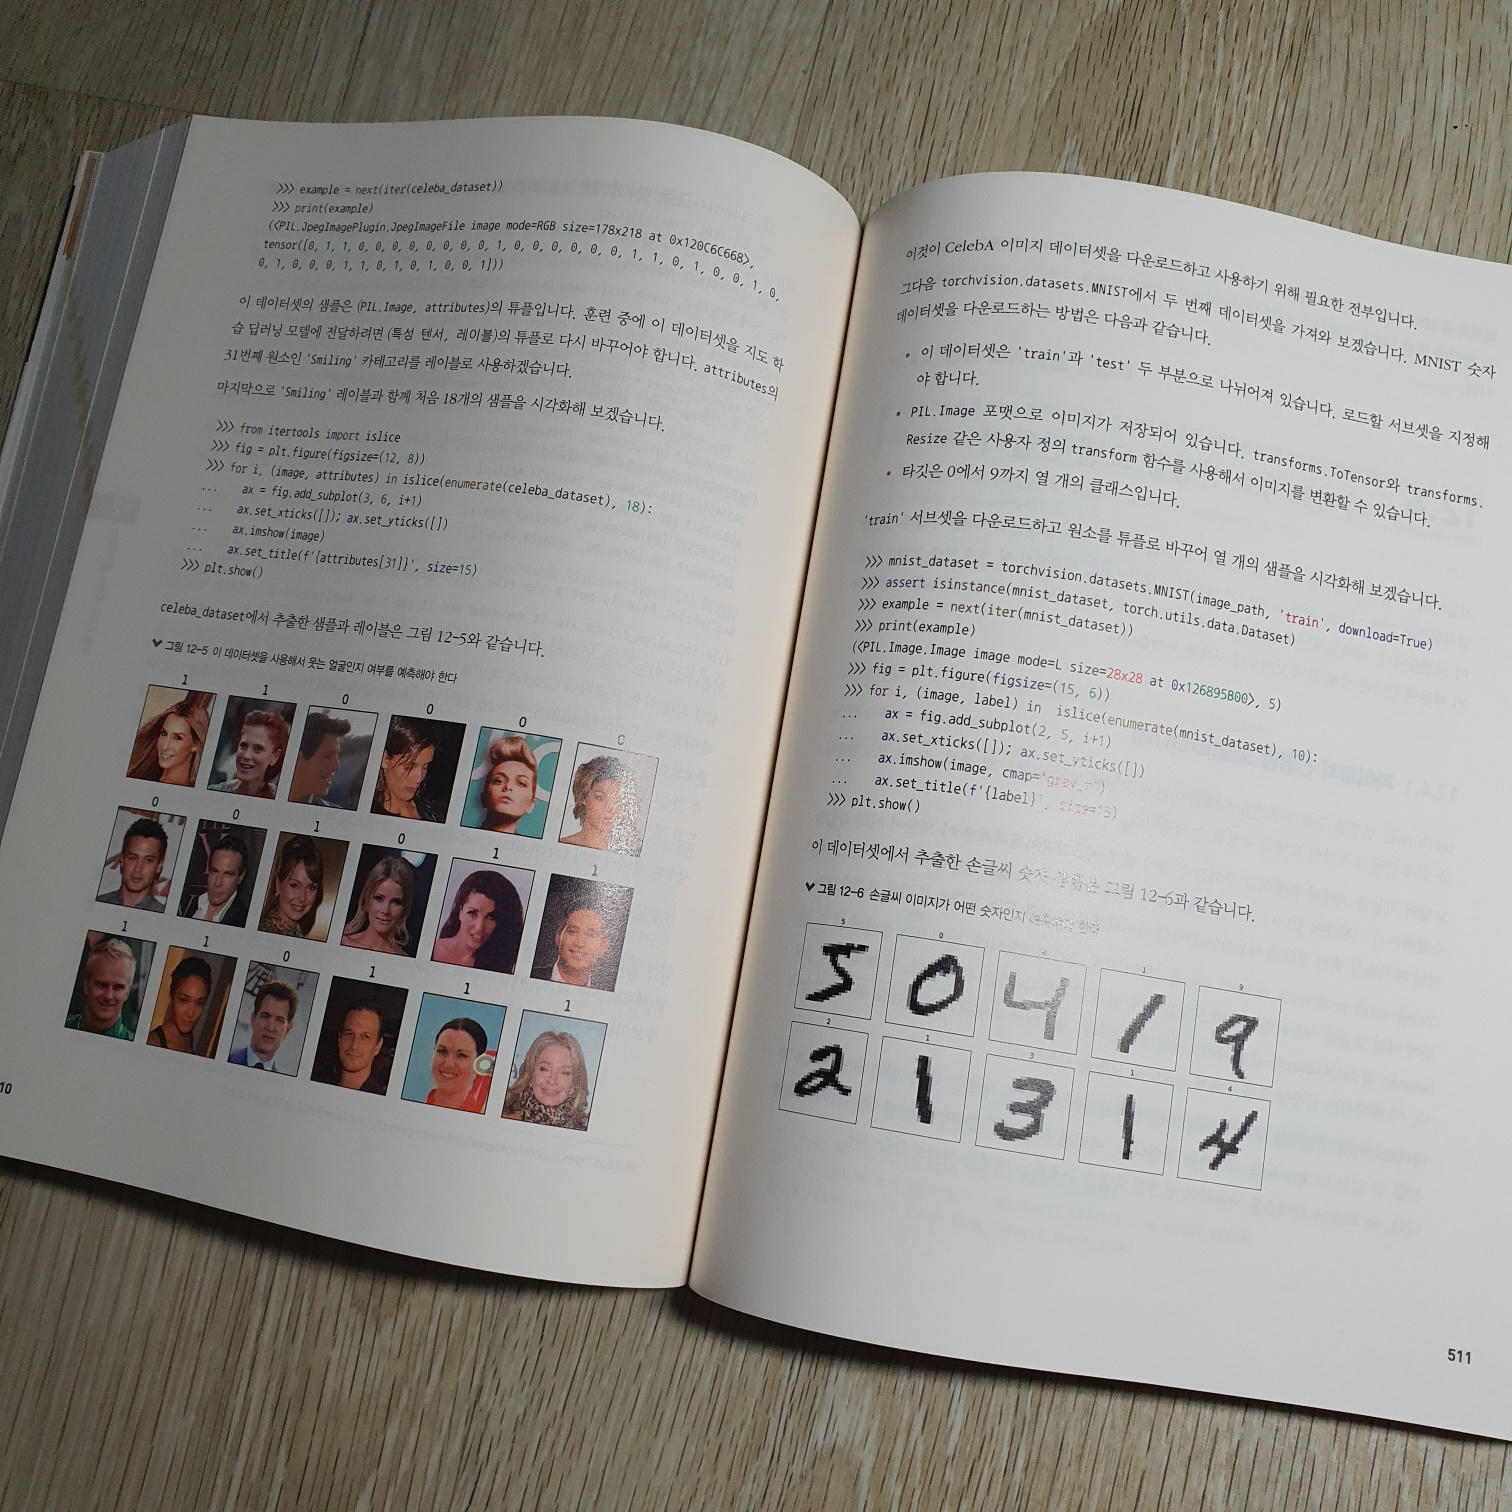 >>> example = next(iter(celeba_dataset))
>>> print(example)
(<PIL.JpegImagePlugin.JpegImageFile image mode=RGB size=178x218 at 0x120C6C668>,
tensor([0, 1, 1, 0, 0, 0, 0, 0, 0, 0, 0, 1, 0, 0, 0, 0, 0, 0, 0, 1, 1, 0, 1, 0, 0, 1, 0,
0, 1, 0, 0, 0, 1, 1, 0, 1, 0, 1, 0, 0, 1]))
이 데이터셋의 샘플은 (PIL.Image, attributes)의 튜플입니다. 훈련 중에 이 데이터셋을 지도 학
습 딥러닝 모델에 전달하려면 (특성 텐서, 레이블)의 튜플로 다시 바꾸어야 합니다. attributes의
31번째 원소인 'Smiling' 카테고리를 레이블로 사용하겠습니다.
마지막으로 'Smiling' 레이블과 함께 처음 18개의 샘플을 시각화해 보겠습니다.
>>> from itertools import islice
>>> fig = plt.figure(figsize=(12, 8))
>>> for i, (image, attributes) in islice(enumerate(celeba_dataset), 18):
... ax = fig.add_subplot(3, 6, i+1)
... ax.set_xticks([]); ax.set_yticks([])
... ax.imshow(image)
... ax.set_title(f'{attributes[31]}', size=15)
>>> plt.show()
celeba_dataset에서 추출한 샘플과 레이블은 그림 12-5와 같습니다.
그림 12-5 이 데이터셋을 사용해서 웃는 얼굴인지 여부를 예측해야 한다
1 1 0 0 0
0 0 1 0 1 1
1 1 0 1 1 1
10
이것이 CelebA 이미지 데이터셋을 다운로드하고 사용하기 위해 필요한 전부입니다.
그다음 torchvision.datasets.MNIST에서 두 번째 데이터셋을 가져와 보겠습니다. MNIST 숫자
데이터셋을 다운로드하는 방법은 다음과 같습니다.
• 이 데이터셋은 'train'과 'test' 두 부분으로 나뉘어져 있습니다. 로드할 서브셋을 지정해
야 합니다.
• PIL.Image 포맷으로 이미지가 저장되어 있습니다. transforms.ToTensor와 transforms.
Resize 같은 사용자 정의 transform 함수를 사용해서 이미지를 변환할 수 있습니다.
• 타깃은 0에서 9까지 열 개의 클래스입니다.
'train' 서브셋을 다운로드하고 원소를 튜플로 바꾸어 열 개의 샘플을 시각화해 보겠습니다.
>>> mnist_dataset = torchvision.datasets.MNIST(image_path, 'train', download=True)
>>> assert isinstance(mnist_dataset, torch.utils.data.Dataset)
>>> example = next(iter(mnist_dataset))
>>> print(example)
(<PIL.Image.Image image mode=L size=28x28 at 0x126895B00>, 5)
>>> fig = plt.figure(figsize=(15, 6))
>>> for i, (image, label) in islice(enumerate(mnist_dataset), 10):
... ax = fig.add_subplot(2, 5, i+1)
... ax.set_xticks([]); ax.set_yticks([])
... ax.imshow(image, cmap='gray_r')
... ax.set_title(f'{label}', size=15)
>>> plt.show()
이 데이터셋에서 추출한 손글씨 숫자 그림 12-6과 같습니다.
그림 12-6 손글씨 이미지가 어떤 숫자인지 예측해야 한다
5 0 4 1 9
5 0 4 1 9
2 1 3 1 4
2 1 3 1 4
511